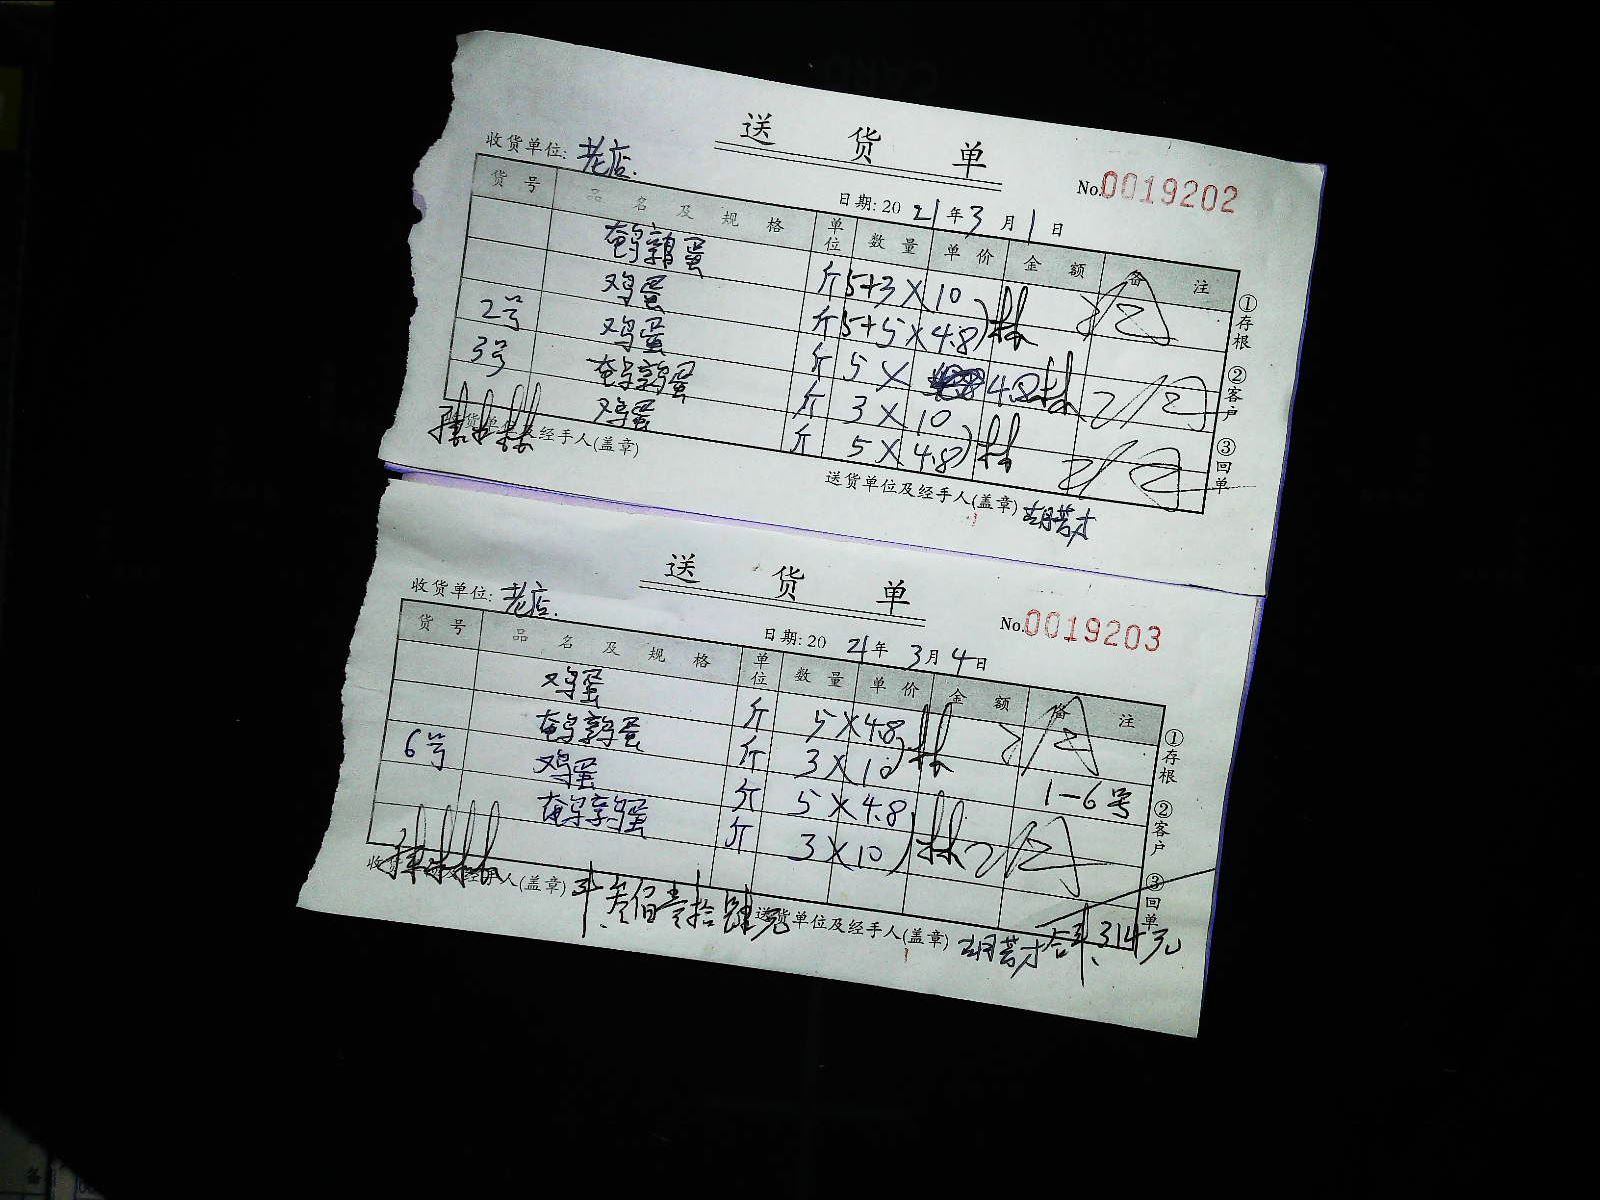 送货单
收货单位: 老店.
No.0019202
日期: 2021年3月1日
货号 品名及规格 单位 数量 单价 金额 备注
鹌鹑蛋 斤 5+3 × 10
鸡蛋 斤 5+5 × 4.8
2号 鸡蛋 斤 5 × 4.8
3号 鹌鹑蛋 斤 3 × 10
鸡蛋 斤 5 × 4.8
①存根 ②客户 ③回单
收货单位及经手人(盖章)
送货单位及经手人(盖章)
送货单
收货单位: 老店.
No.0019203
日期: 2021年3月4日
货号 品名及规格 单位 数量 单价 金额 备注
鸡蛋 斤 5 × 4.8
鹌鹑蛋 斤 3 × 10
6号 鸡蛋 斤 5 × 4.8
1-6号
鹌鹑蛋 斤 3 × 10
①存根 ②客户 ③回单
收货单位及经手人(盖章)
叁佰壹拾肆元
送货单位及经手人(盖章)
314元